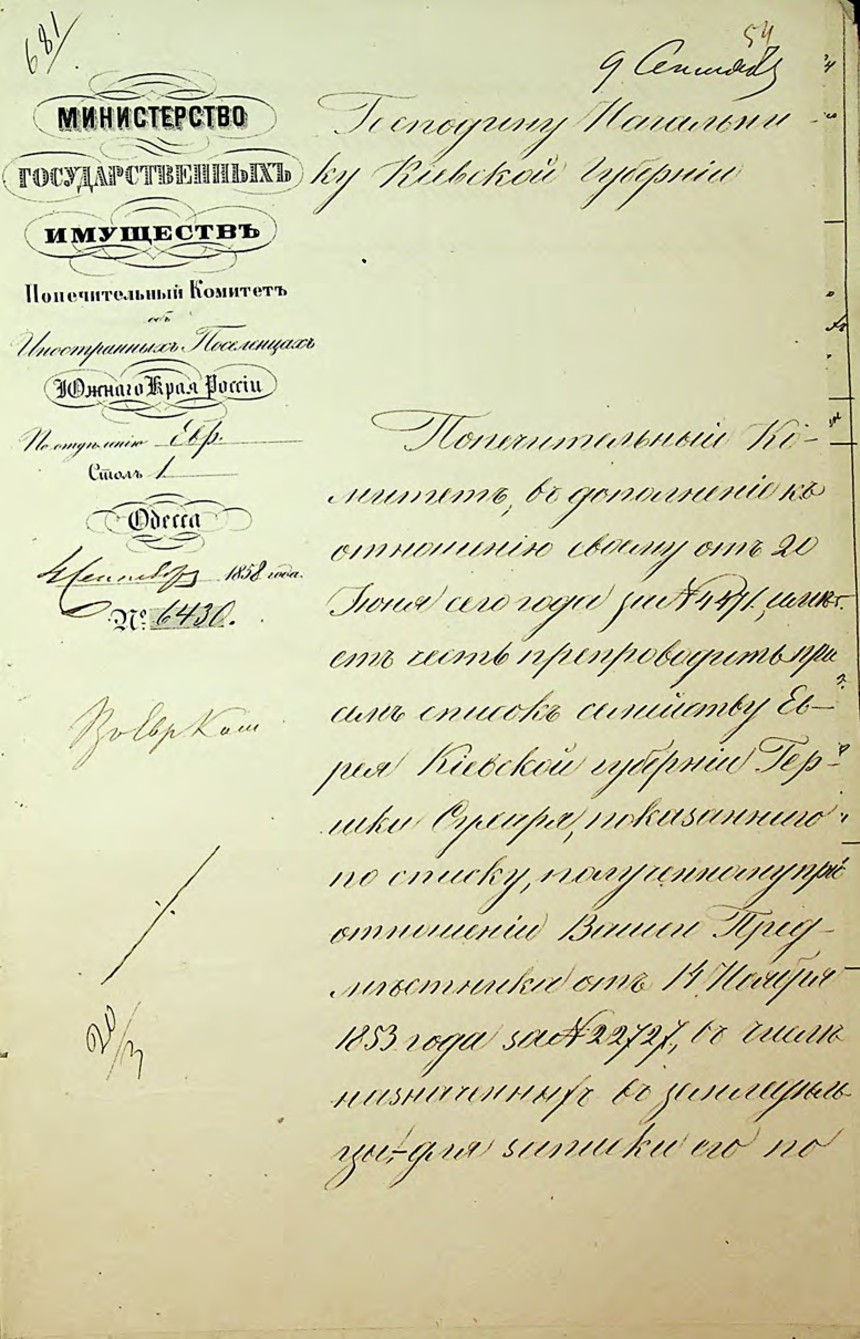 681/
54
9 Сентяб
МИНИСТЕРСТВО
ГОСУДАРСТВЕННЫХЪ
ИМУЩЕСТВЪ
Попечительный Комитетъ
объ
Иностранныхъ Поселенцахъ
Южнаго Края Россіи
По отдѣленію Евр.
Столъ 1
Одесса
4 Сентября 1858 года.
№ 6430.
20/3
Господину Начальни-
ку Кіевской Губерніи
Попечительный Ко-
митетъ, въ дополненіе къ
отношенію своему отъ 20
Іюня сего года за №4471, имѣ-
етъ честь препроводить при
семъ списокъ семейству Ев-
рея Кіевской губерніи Гер-
шки Сухаря, показаннаго
по списку, полученному при
отношеніи Вашего Пред-
мѣстника отъ 14 Ноября
1853 года за №22727, въ числѣ
назначенныхъ въ земледѣль-
цы, для записки его по